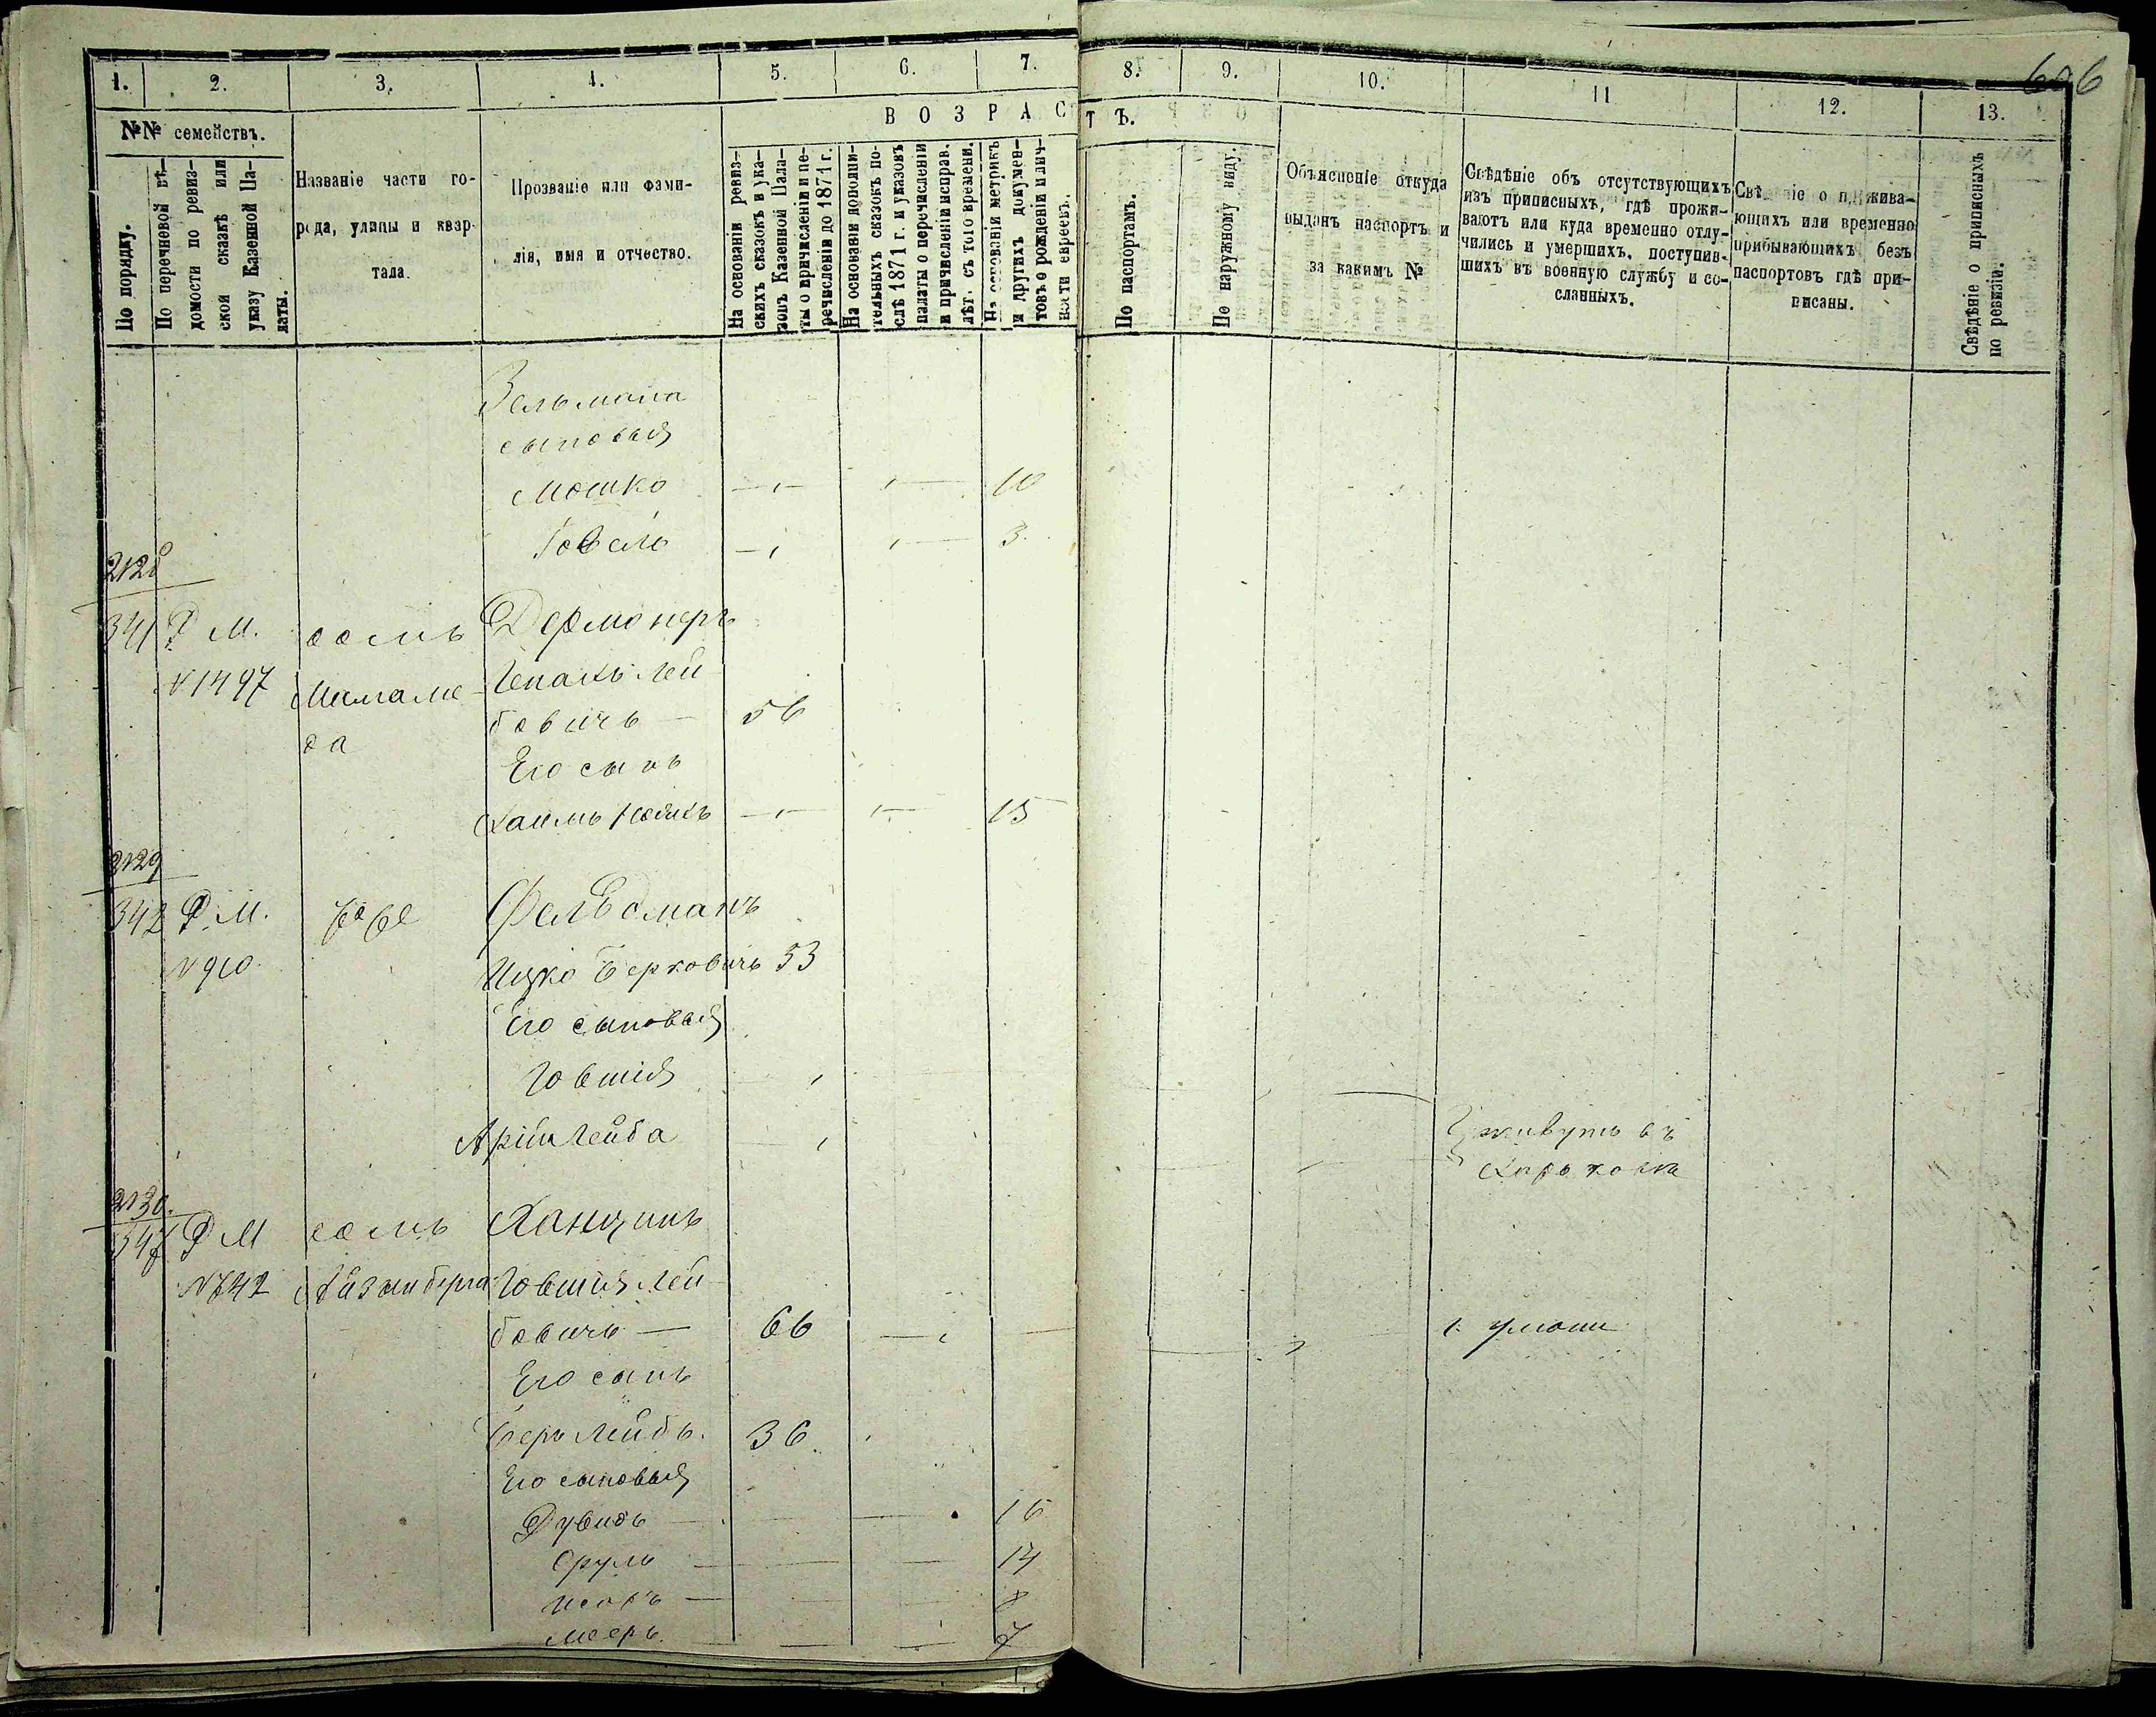 606
1. 2. 3. 4. 5. 6. 7. 8. 9. 10. 11 12. 13.
№№ семействъ.
ВОЗРАСТЪ.
По порядку.
По перечневой вѣ-
домости по ревиз-
ской сказкѣ или
указу Казенной Па-
латы.
Названіе части го-
рода, улицы и квар-
тала.
Прозваніе или фами-
лія, имя и отчество.
На основаніи ревиз-
скихъ сказокъ и ука-
зовъ Казенной Пала-
ты о причисленіи и пе-
речисленіи до 1871 г.
На основаніи дополни-
тельныхъ сказокъ по-
слѣ 1871 г. и указовъ
палаты о перечисленіи
и причисленіи исправ.
лѣт. съ того времени.
На основаніи метрикъ
и другихъ докумен-
товъ о рожденіи и лич-
ности евреевъ.
По паспортамъ.
По наружному виду.
Объясненіе откуда
выданъ паспортъ и
за какимъ №
Свѣдѣніе объ отсутствующихъ
изъ приписныхъ, гдѣ прожи-
ваютъ или куда временно отлу-
чились и умершихъ, поступив-
шихъ въ военную службу и со-
сланныхъ.
Свѣдѣніе о прожива-
ющихъ или временно
прибывающихъ безъ
паспортовъ гдѣ при-
писаны.
Свѣдѣніе о приписныхъ
по ревизіи.
Зельмана
сыновья
Мошко 10
Іовель 3
2128
341 Р. М. домъ
№ 1497
Лей
бовичь — 56
Его сынъ
Хаимъ 15
2129
342 Р. М. Фельдманъ
№ 910 Ицко Берковичъ 53
Его сыновья
Іовшія
Арій Лейба живутъ въ
2130.
Р М домъ Ханцинъ
Іовшія Лей
бовичь — 66 г. Умани
Его сынъ
Беръ Лейбъ. 36
Его сыновья
Дувидъ — 16
Сруль — 14
Исакъ — 8
Мееръ 7